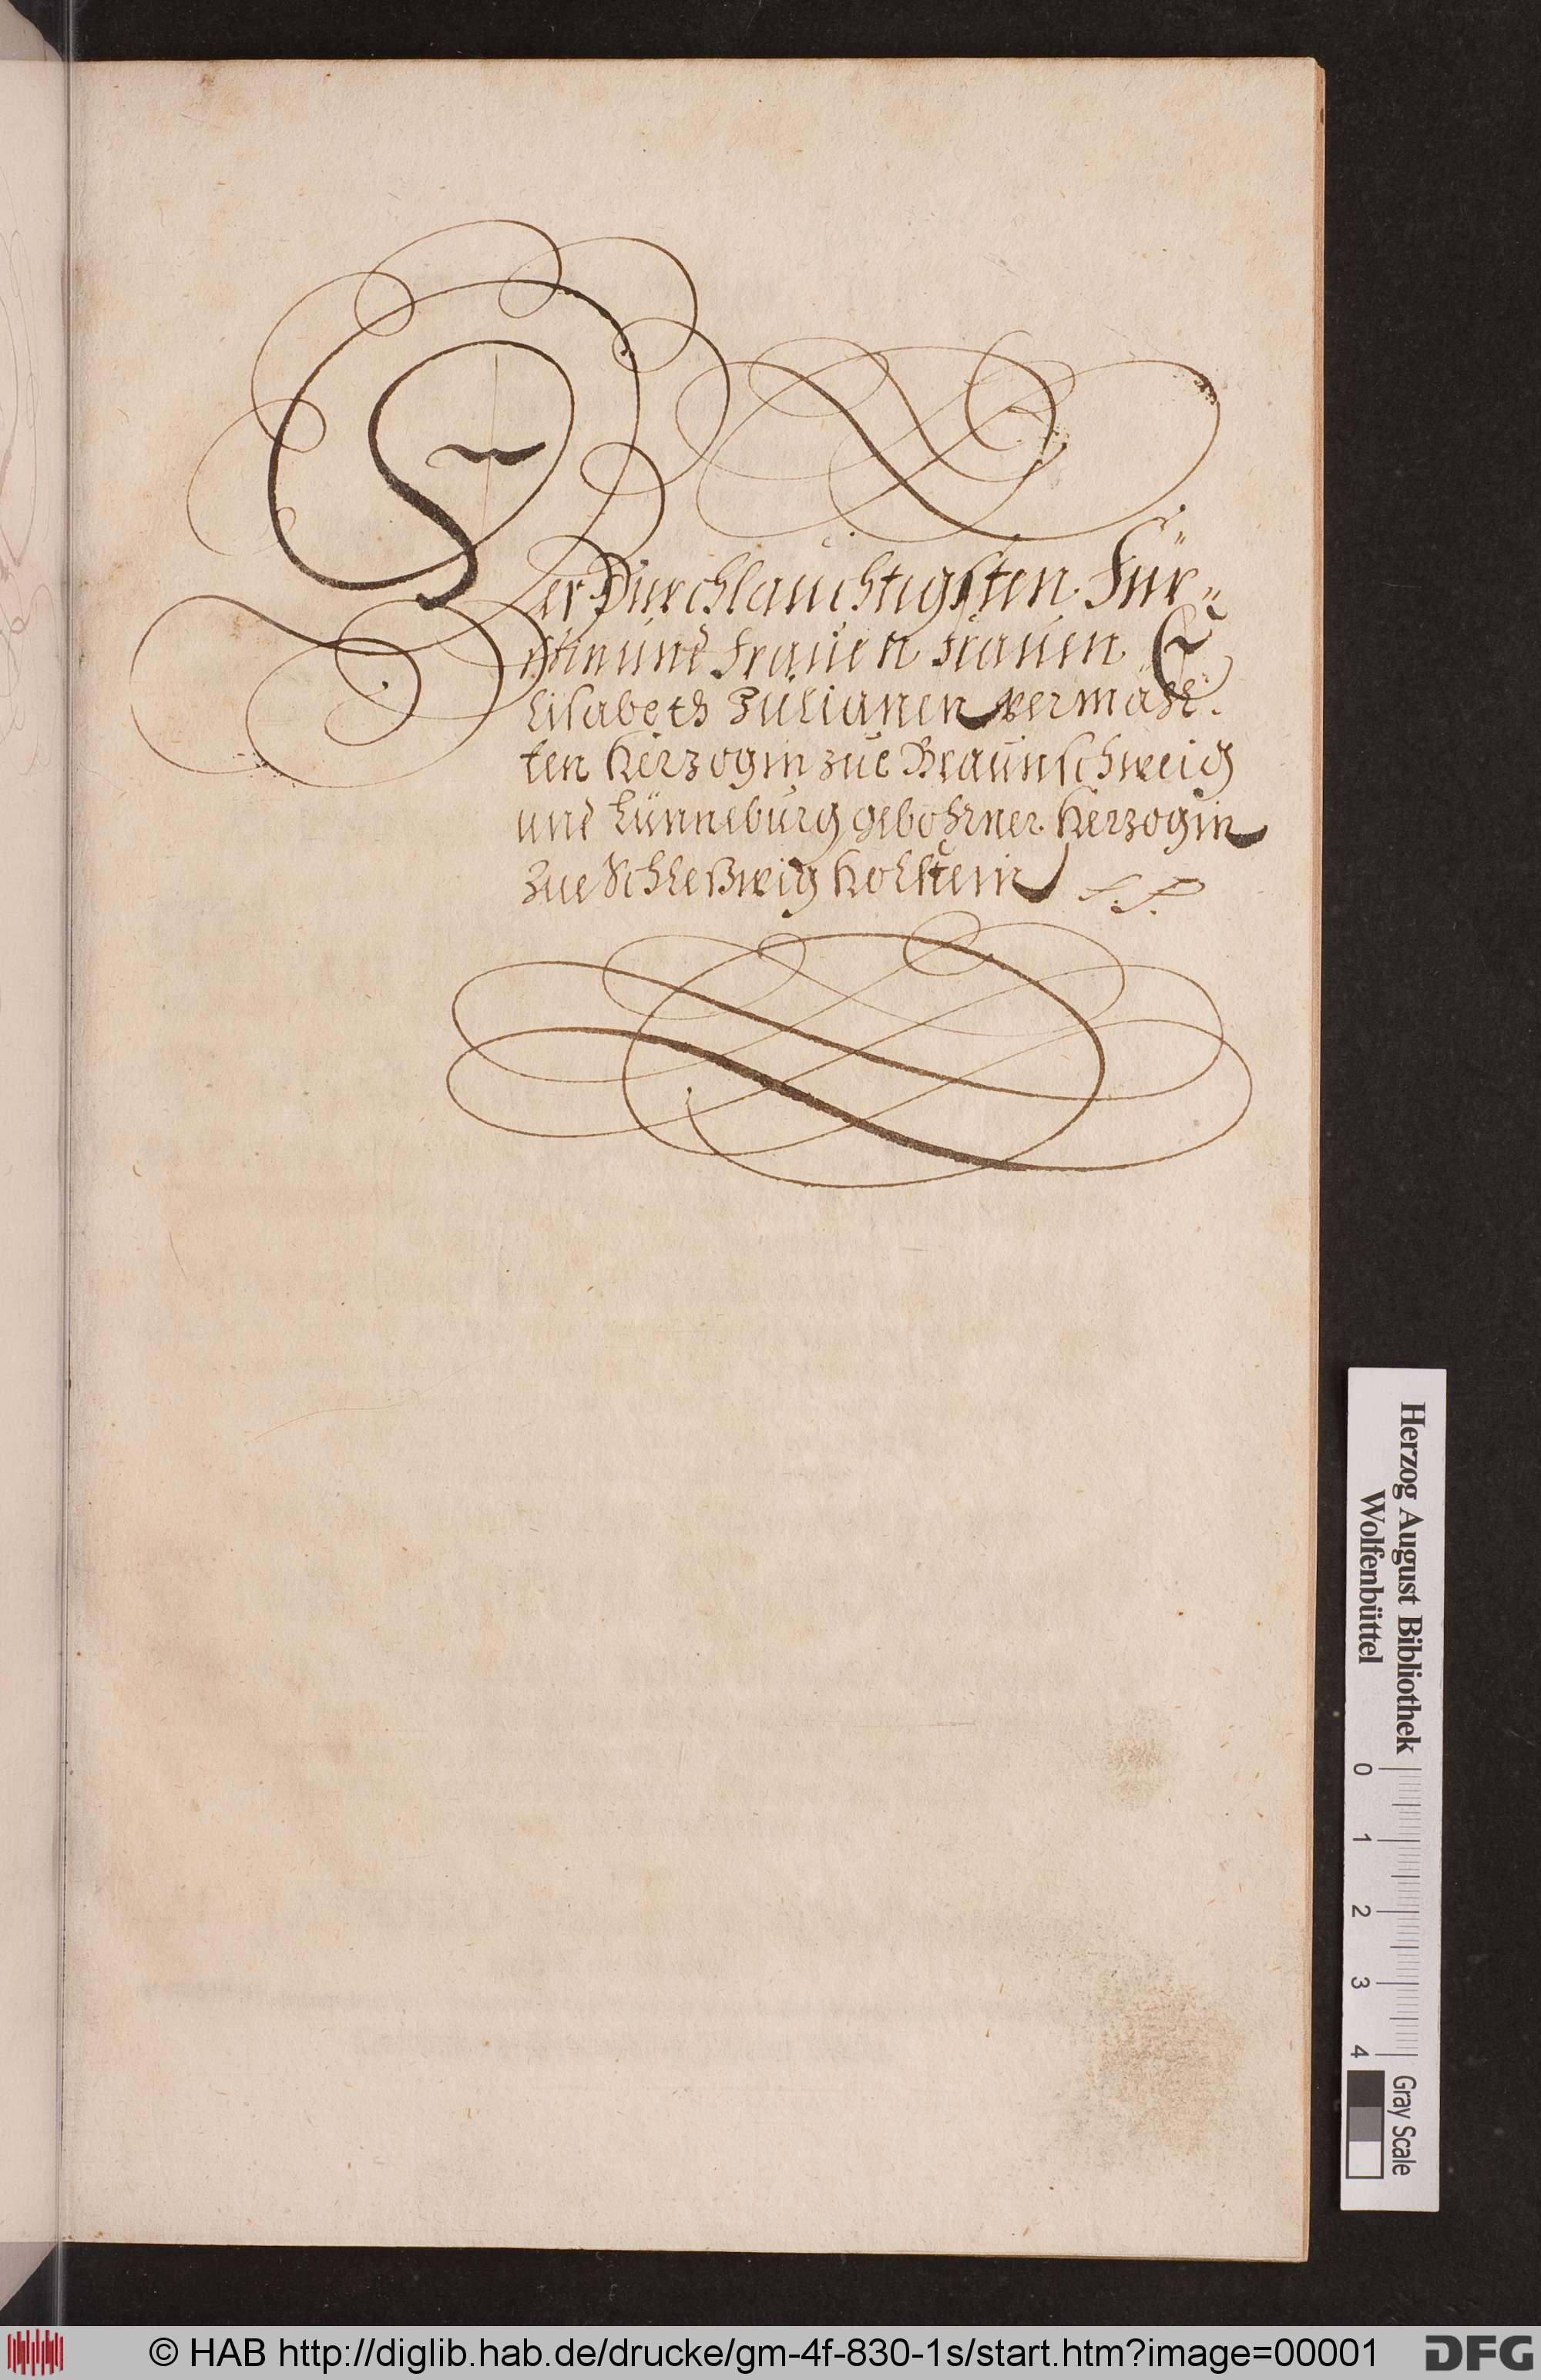 Der Durchlauchtigsten Für-
stin und Frauen Frauen E
lisabeth Julianen vermähl-
ten Herzogin zue Braunschweig
und Lünneburg gebohrner Herzogin
zue Schleßwig Holstein
Herzog August Bibliothek
Wolfenbüttel
0 1 2 3 4
Gray Scale
© HAB http://diglib.hab.de/drucke/gm-4f-830-1s/start.htm?image=00001
DFG